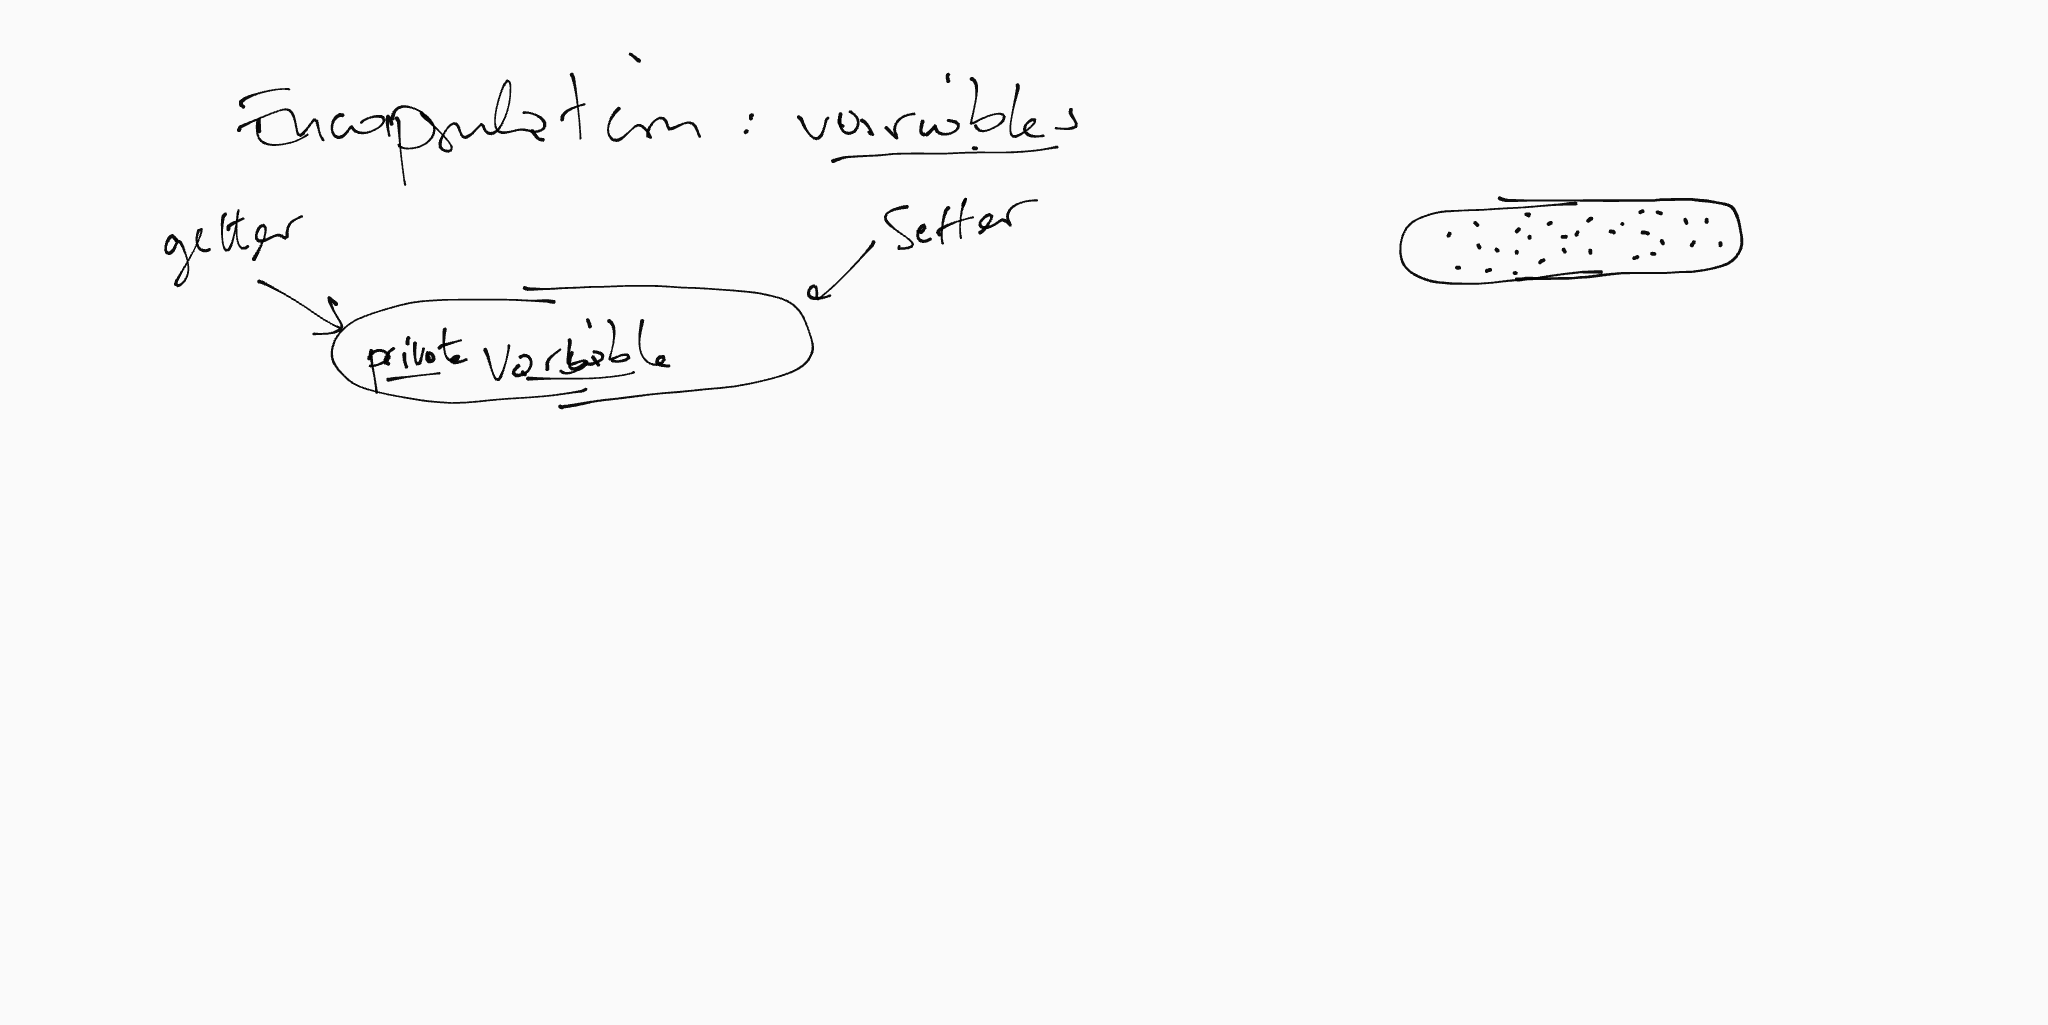 Encapsulation : variables
getter
Setter
private Variable